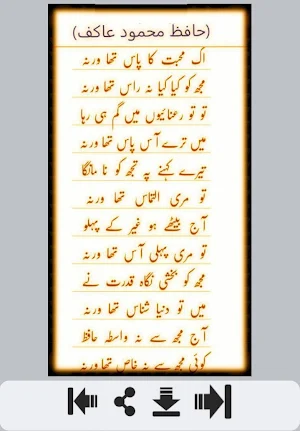 (حافظ محمود عاکف)
اک محبت کا پاس تھا ورنہ
مجھ کو کیا کیا نہ راس تھا ورنہ
تو تو رعنائیوں میں گم ہی رہا
میں ترے آس پاس تھا ورنہ
تیرے کہنے پہ تجھ کو نا مانگا
تو مری التماس تھا ورنہ
آج بیٹھے ہو غیر کے پہلو
تو مری پہلی آس تھا ورنہ
مجھ کو بخشی نگاہ قدرت نے
میں تو دنیا شناس تھا ورنہ
آج مجھ سے نہ واسطہ حافظ
کوئی مجھ سے نہ خاص تھا ورنہ